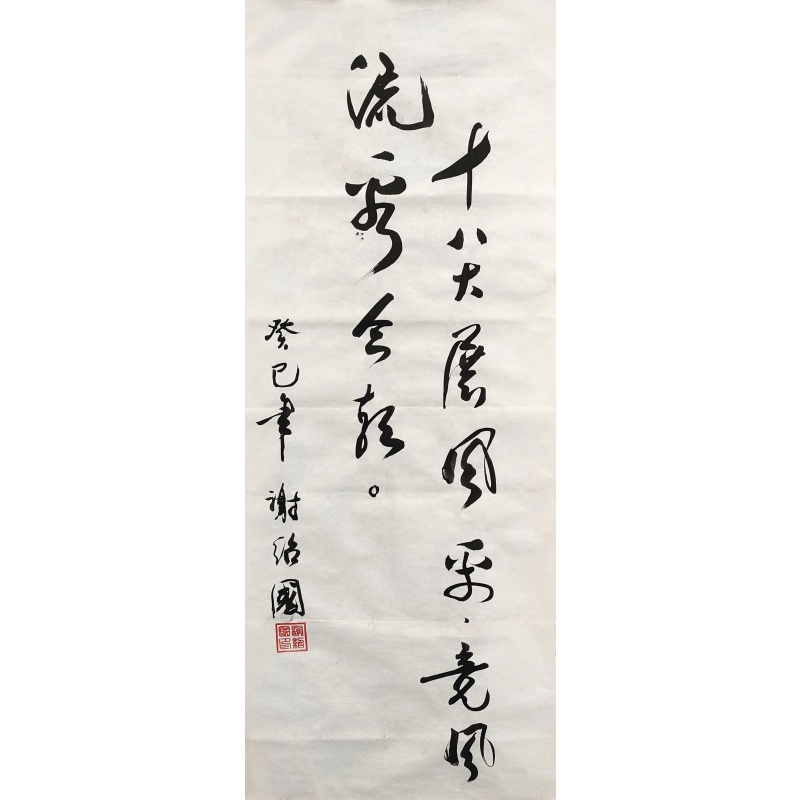 十八大展风采、竞风
流看今朝。
癸巳年 谢绍國